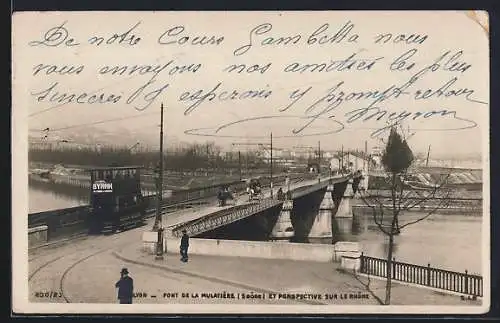 De notre Cours Gambetta nous
vous envoyons nos amitiés les plus
sincères & espérons y prompt retour
Meyron
BYRRH
230/23 LYON - PONT DE LA MULATIÈRE (SAÔNE) ET PERSPECTIVE SUR LE RHÔNE
S.F.